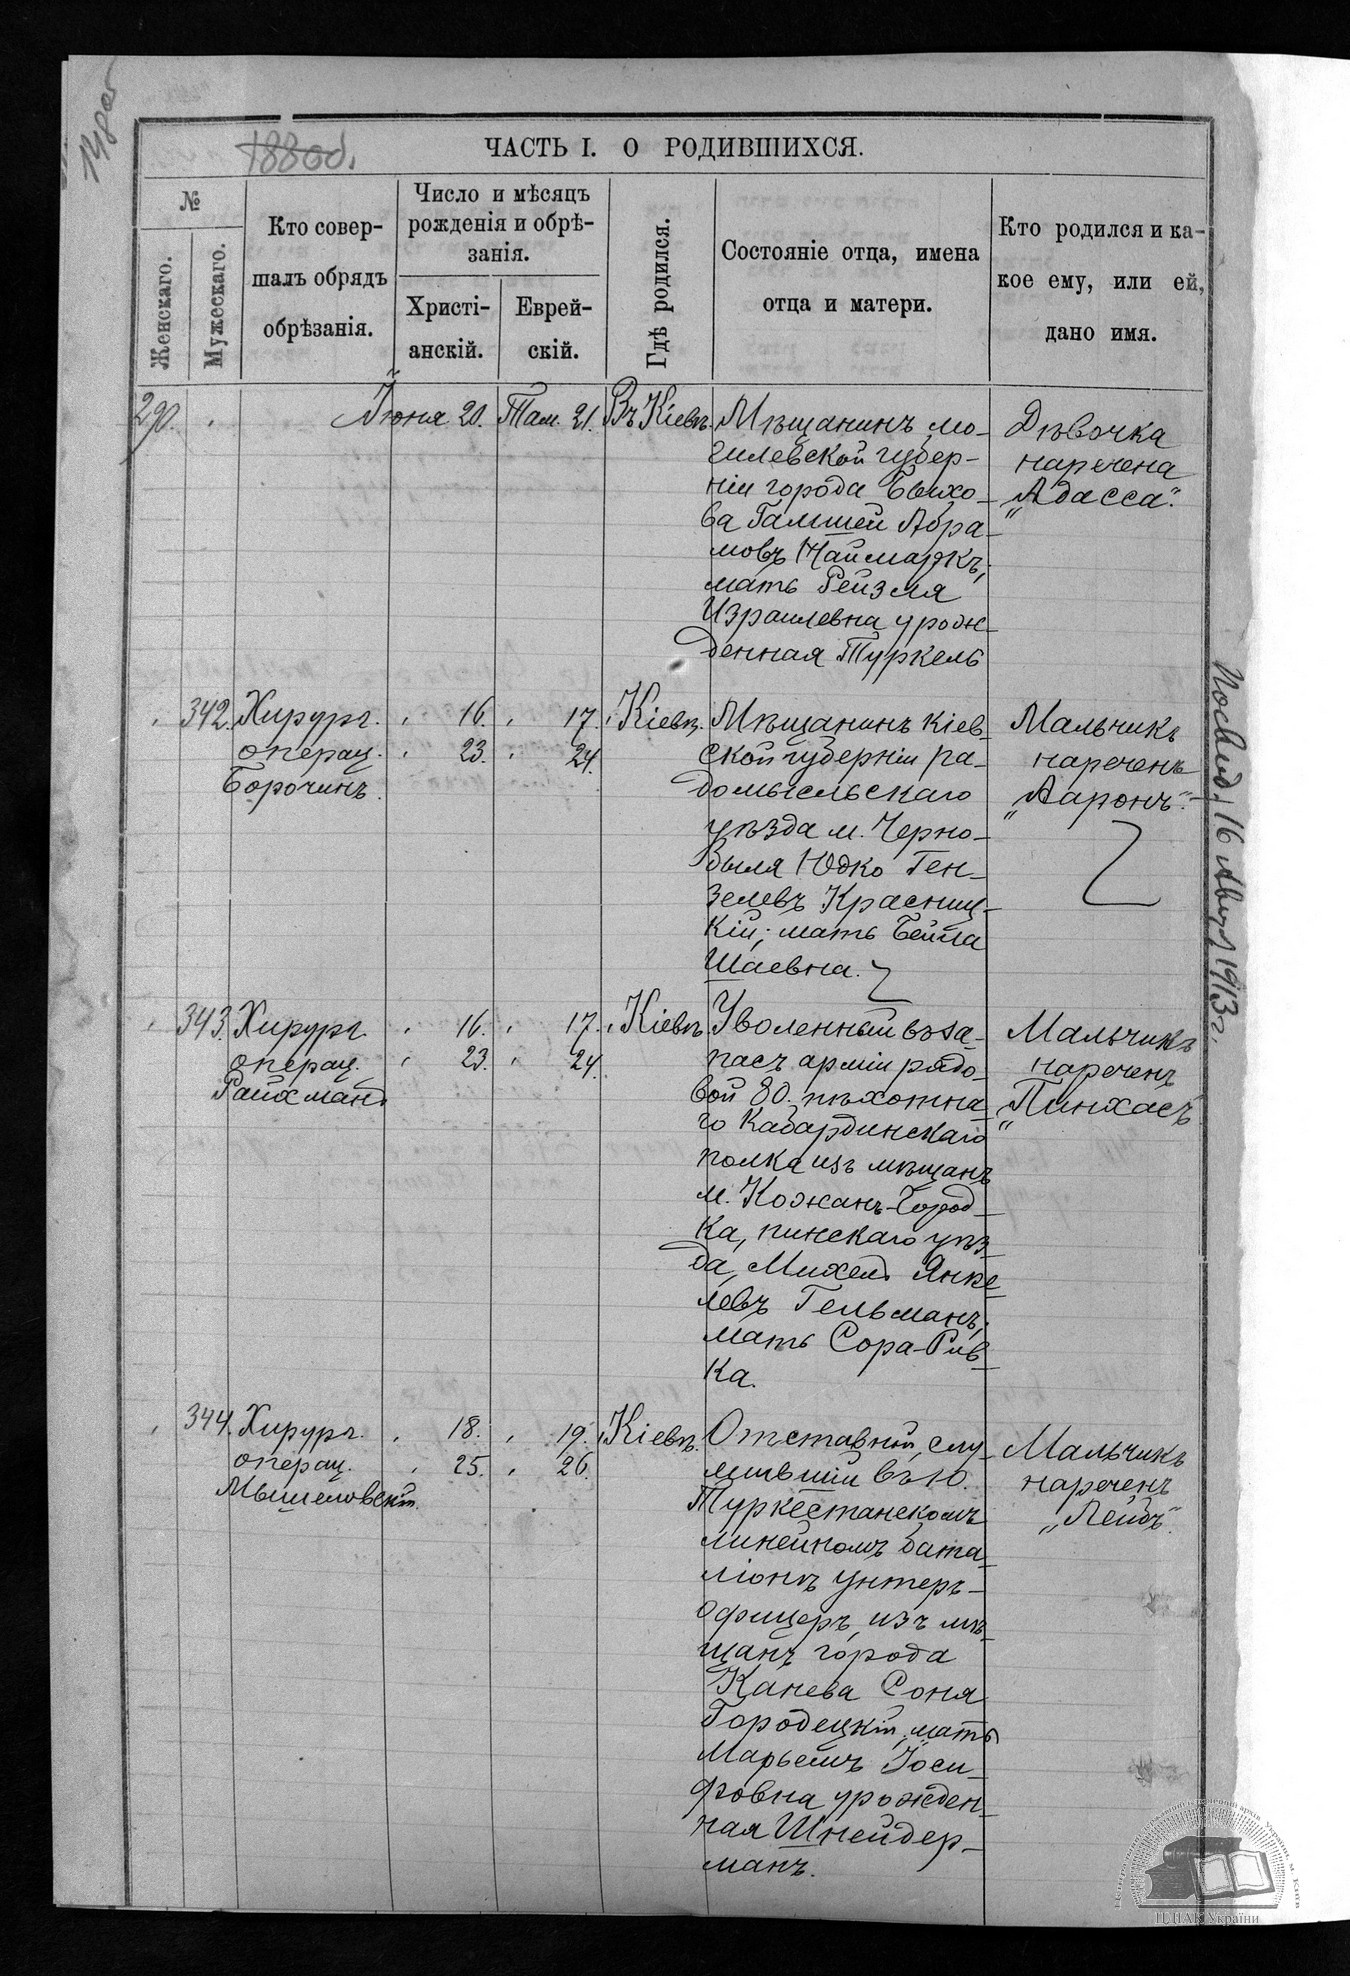 ЧАСТЬ I. О РОДИВШИХСЯ.
№
Женскаго.
Мужескаго.
Кто совер-
шалъ обрядъ
обрѣзанія.
Число и мѣсяцъ
рожденія и обрѣ-
занія.
Христі-
анскій.
Еврей-
скій.
Гдѣ родился.
Состояніе отца, имена
отца и матери.
Кто родился и ка-
кое ему, или ей,
дано имя.
290. Іюня 20. Там. 21. Въ Кіевѣ.
Мѣщанинъ мо-
гилевской губер-
ніи города Быхо-
ва Гамшей Абра-
мовъ Наймаркъ;
мать Рейзля
Израилевна урож-
денная Туркель
Дѣвочка
наречена
„Адасса".
342. Хирург. 16. 17. Кіевѣ.
операц. 23. 24.
Борочинъ
Мѣщанинъ Кіев-
ской губерніи ра-
домысльскаго
уѣзда м. Черно-
быля Юдко Ген-
зелевъ Красниц-
кій; мать Бейла
Шаевна.
Мальчикъ
нареченъ
„Ааронъ".
343. Хирург. 16. 17. Кіевѣ
операц. 23. 24.
Райхманъ
Уволенный въ за-
пасъ арміи рядо-
вой 80. пѣхотна-
го Кабардинскаго
полка изъ мѣщанъ
м. Кожанъ-Город-
ка, пинскаго уѣз-
да, Михель Янке-
левъ Гельманъ;
мать Сора-Рив-
ка.
Мальчикъ
нареченъ
„Пинхасъ"
344. Хирург. 18. 19. Кіевѣ.
операц. 25. 26.
Мышеловскій.
Отставной, слу-
жившій въ 10.
Туркестанскомъ
линейномъ бата-
ліонѣ унтеръ-
офицеръ, изъ мѣ-
щанъ города
Канева Соня
Городецкій, мать
Марьемъ Іоси-
фовна урожден-
ная Шнейдер-
манъ.
Мальчикъ
нареченъ
„Лейбъ".
16 1913 г.
ЦДІАК України